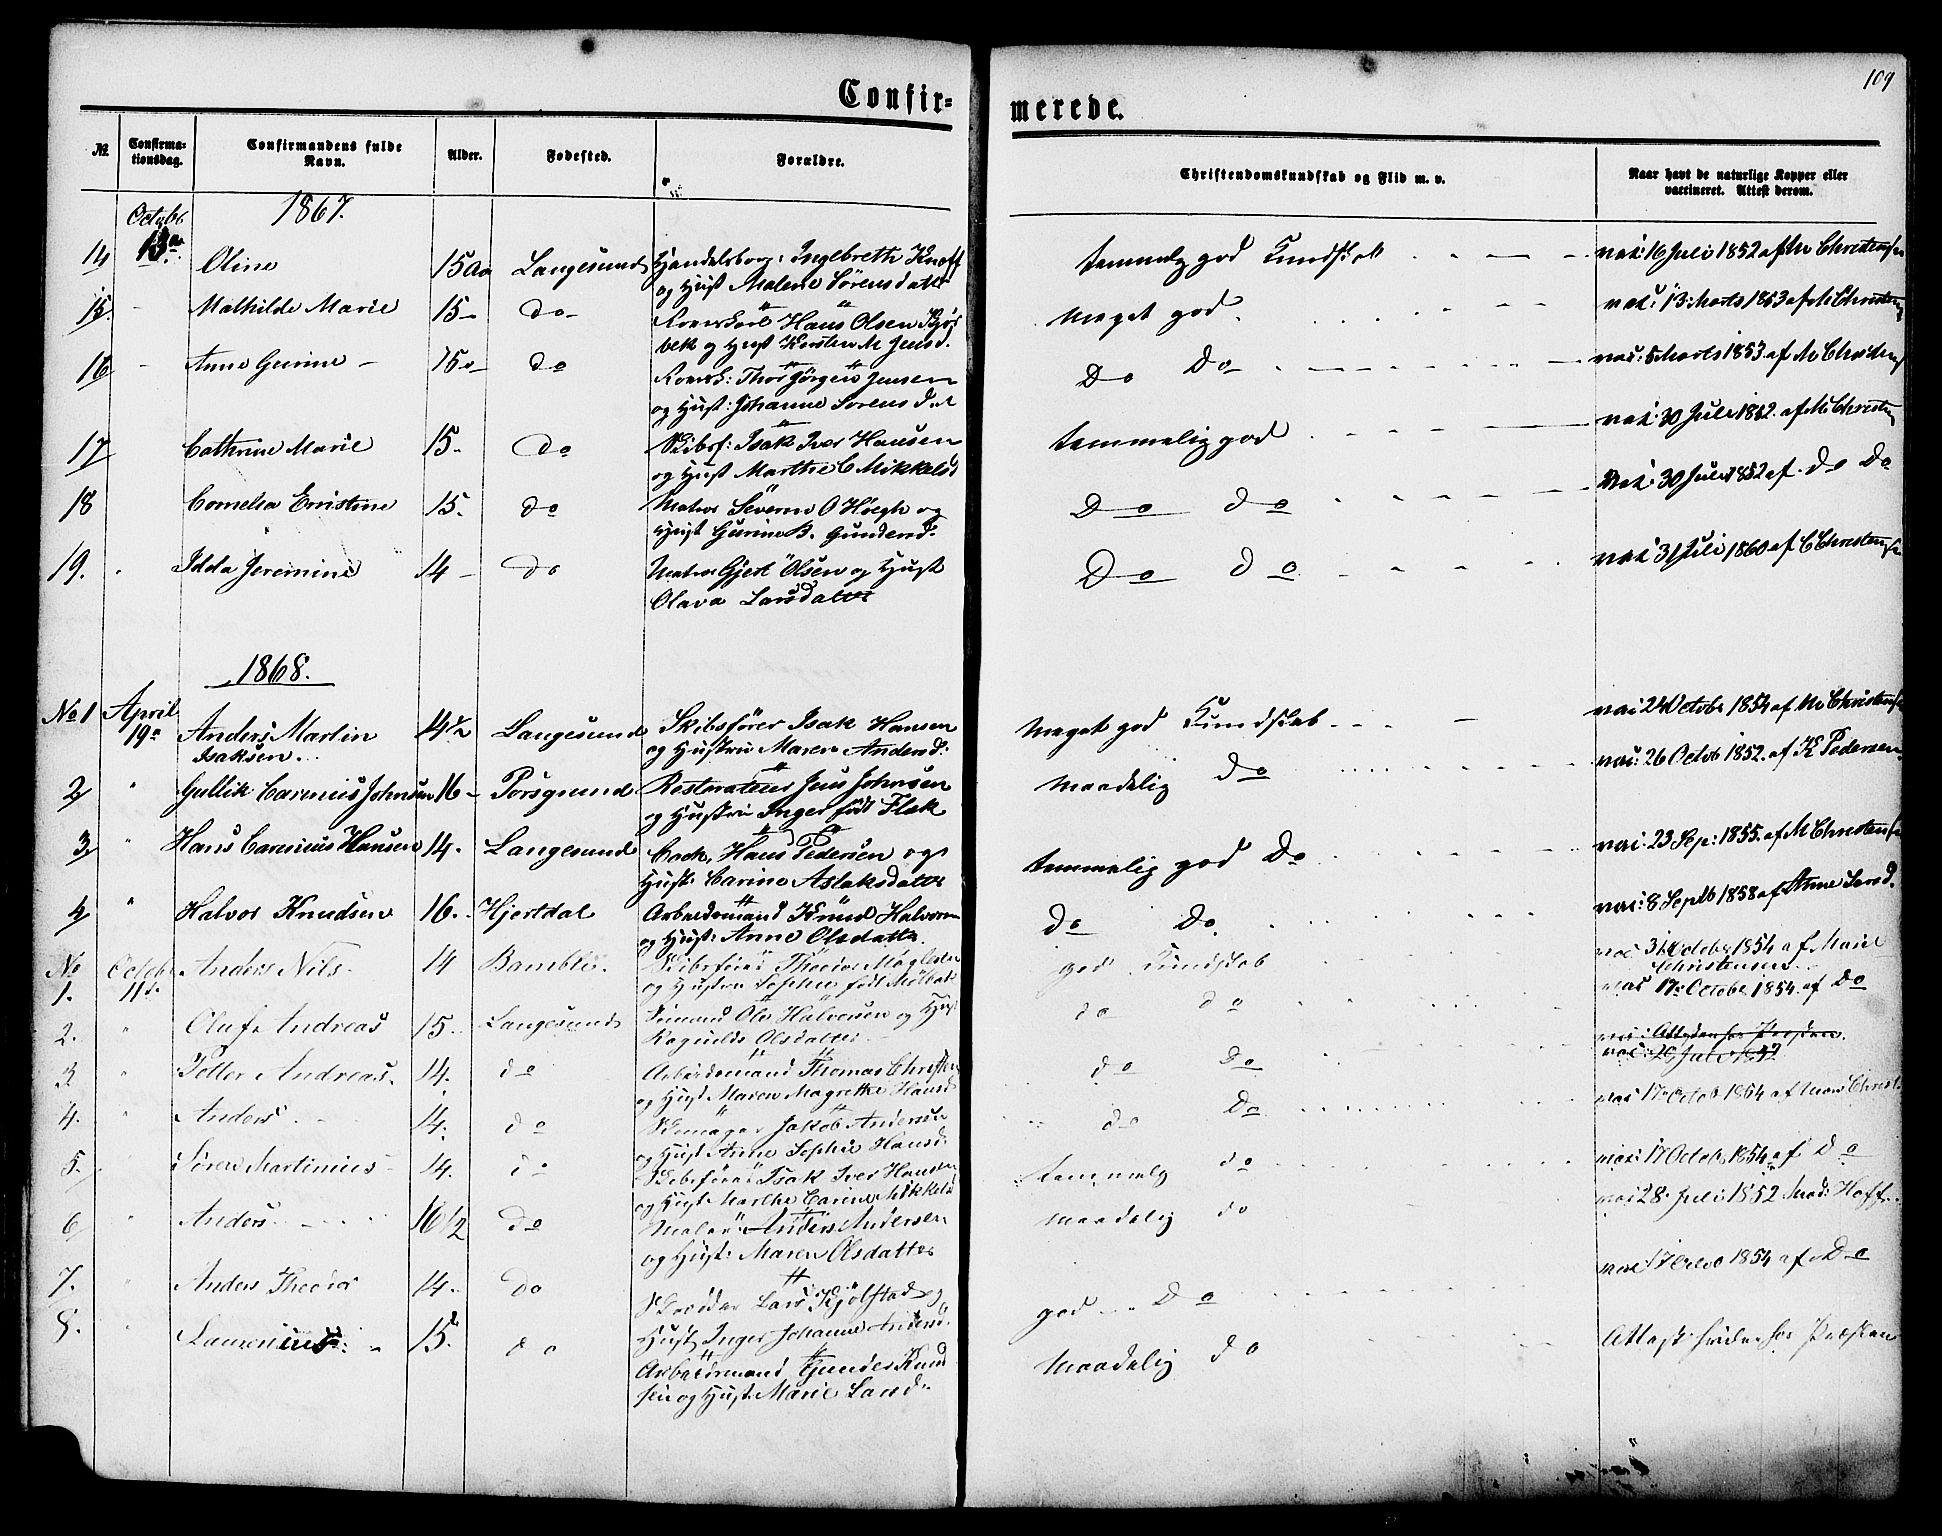 109
Confir=
merede.
№
Confirma-
tionsdag.
Confirmandens fulde
Navn.
Alder.
Fødested.
Forældre.
Christendomskundskab og Flid m. v.
Naar havt de naturlige Kopper eller
vaccineret. Attest derom.
1867.
Octobr
13de
14 Oline 15 Aar Langesund Handelsborg: Ingebreth Knoff temmelig god Kundskab vac: 16 Juli 1852 af Chrestensen
og Hust Malene Sørensdatter
15. Mathilde Marie 15 do Hans Olsen meget god vac: 13 Marts 1853 af M Chrestensen
og Hust Kirsten M Jensd.
16 Anne Gurine 15 do Thor Jørgen Jensen Do Do vac: 5 Marts 1853 af M Chrestens
og Hust: Johanne Sørensdat
17 Cathrine Marie 15 do Skibsf: Isak Iver Hansen temmelig god vac: 30 Juli 1852 af M Chresten
og Hust Marthe C Mikkelsd
18 Cornelia Ernstine 15. do Matros Severin O Høegh og Do do vac: 30 Juli 1852 af Do Do
Hust Gurine B. Gundersd.
19. Idda Jeremine 14 do Matros Gjert Olsen og Hust Do do vac 31 Juli 1860 af C Chrestensen
Olava Larsdatter
1868.
No 1 April Anders Martin 14½ Langesund Skibsfører Isak Hansen Meget god Kundskab vac 24 Octobr 1854 af M Chrestensen
19de Isaksen. og Hustru Maren Andersd:
2 " Gullik Carenius Johnsen 16 Porsgrund Restauratør Jens Johnsen maadelig do vac: 26 Octob 1852. af K Pedersen
og Hustru Inger født Flak
3 " Hans Carenius Hansen 14. Langesund Cock, Hans Pedersen og temmelig god Do vac: 23 Sep: 1855. af M Chrestensen
Hust: Carine Aslaksdatter
4 " Halvor Knudsen 16. Hjertdal Arbeidsmand Knud Halvorsen do Do. vac: 8 Septb 1858 af Anne Larsd.
og Hust: Anne Olsdatter.
No Octob Anders Nils 14 Bamble. Skibsfører god Kundskab vac 31 October 1854 af Maren
1. 11te og Hustru Sophie født Christensen
2. " Oluf Andreas 15. Langesund Sømand Ole Halvorsen og Hust do do vac 17 October 1854. af Do
Ragnild Olsdatter
3. " Petter Andreas. 14. do Arbeidsmand Thomas Christen do Do
og Hust Maren Magrethe Hansd
4. " Anders 14. do Jakob Andersen do Do vac 17 Octob 1854 af Christ
og Hust Anne Sophie Hansd.
5. " Søren Martinius 14. do Skibsfører Isak Iver Hansen temmelig do vac: 17 Octob 1854 af Do
og Hust Marthe Carine Mikkelsd
6 Anders 16½ do Anders Andersen maadelig do vac 28 Juli 1852 Mad: Hoff
og Hust: Maren Olsdatter
7. " Anders Theodor 14. Do Lars Kjølstad og god Do vac 17 1854 af Do
Hust Inger Johanne Andersd.
8. " Laurentius 15. do Arbeidsmand Gunder Knud maadelig do Attest hos Præsten
sen og Hust: Marie Larsd.